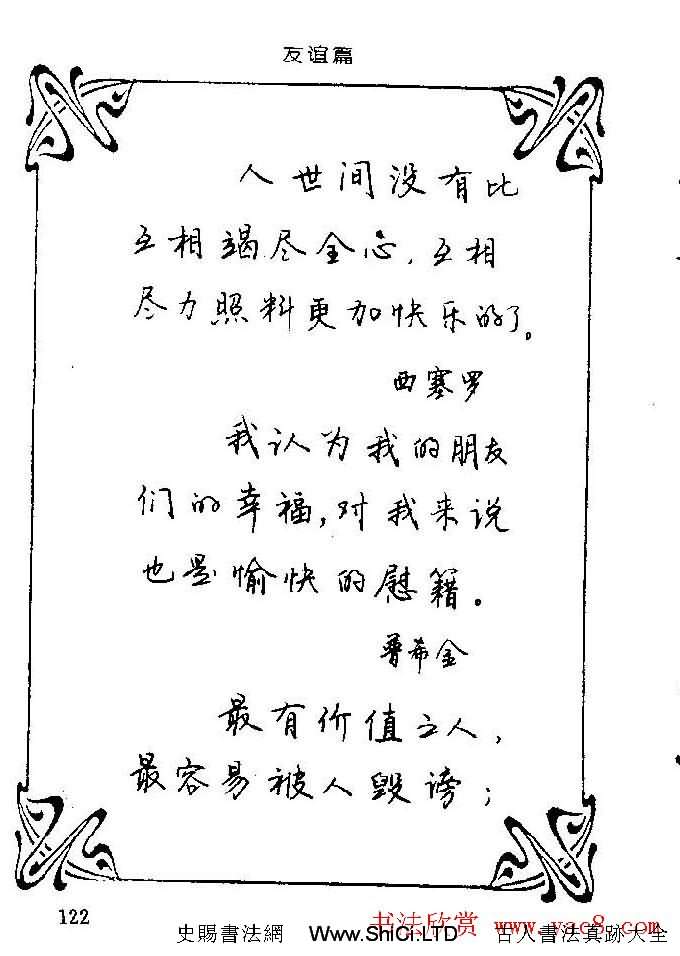 友谊篇
人世间没有比
互相竭尽全心，互相
尽力照料更加快乐的了。
西塞罗
我认为我的朋友
们的幸福，对我来说
也是愉快的慰籍。
普希金
最有价值之人，
最容易被人毁谤；
122
书法欣赏 www.yac8.com
史賜書法網 www.ShiCi.LTD 古人書法真跡大全